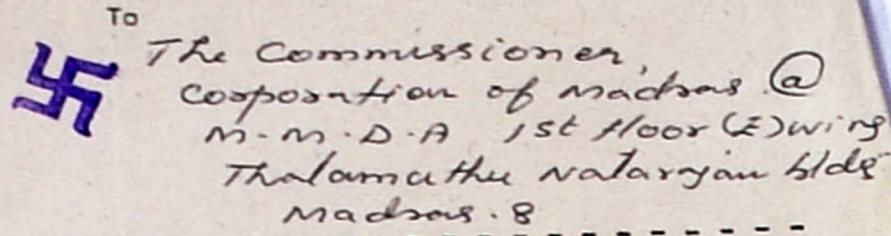 To
The Commissioner,
Corporation of Madras @
M.M.D.A 1st floor (E) wing
Thalamuthu Natarajan bldg
Madras. 8